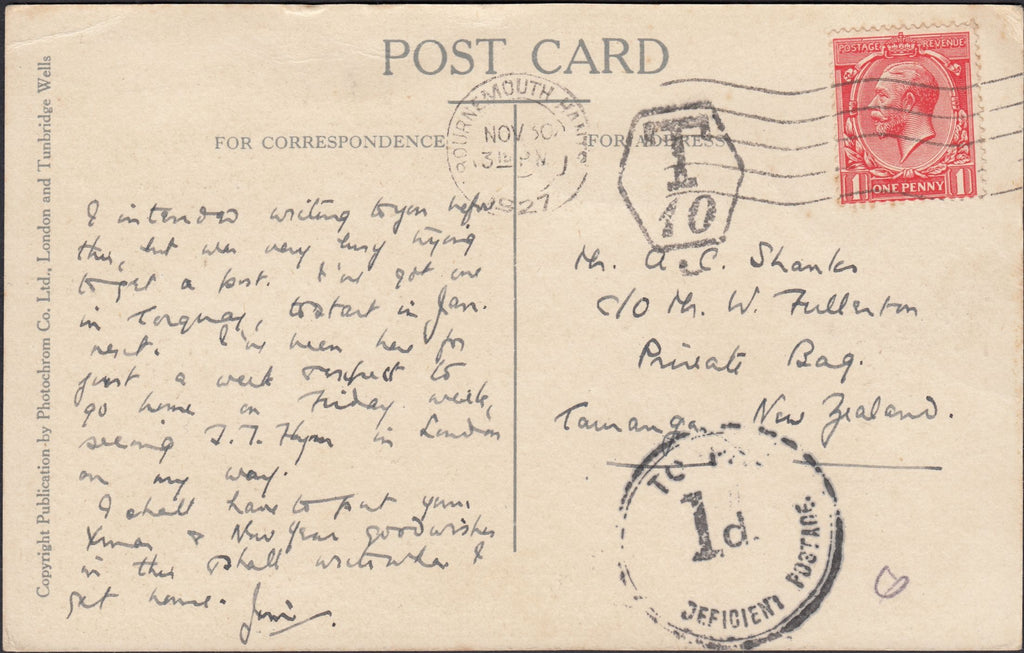 POST CARD
FOR CORRESPONDENCE
FOR ADDRESS
BOURNEMOUTH HANTS
NOV 30
3 PM
1927
T
10
POSTAGE REVENUE
1 ONE PENNY 1
Copyright Publication-by Photochrom Co. Ltd., London and Tunbridge Wells
I intended writing to you before
this, but was very busy trying
to get a post. I've got one
in Torquay, to start in Jan.
next. I've been here for
just a week & expect to
go home on Friday week,
seeing J.T. in London
on my way.
I shall have to put your
Xmas & New Year good wishes
in this & shall write when I
get home.
Mr. A. C. Shanks
c/o Mr. W. Fullerton
Private Bag.
Tauranga, New Zealand.
TO PAY
1d.
DEFICIENT POSTAGE.